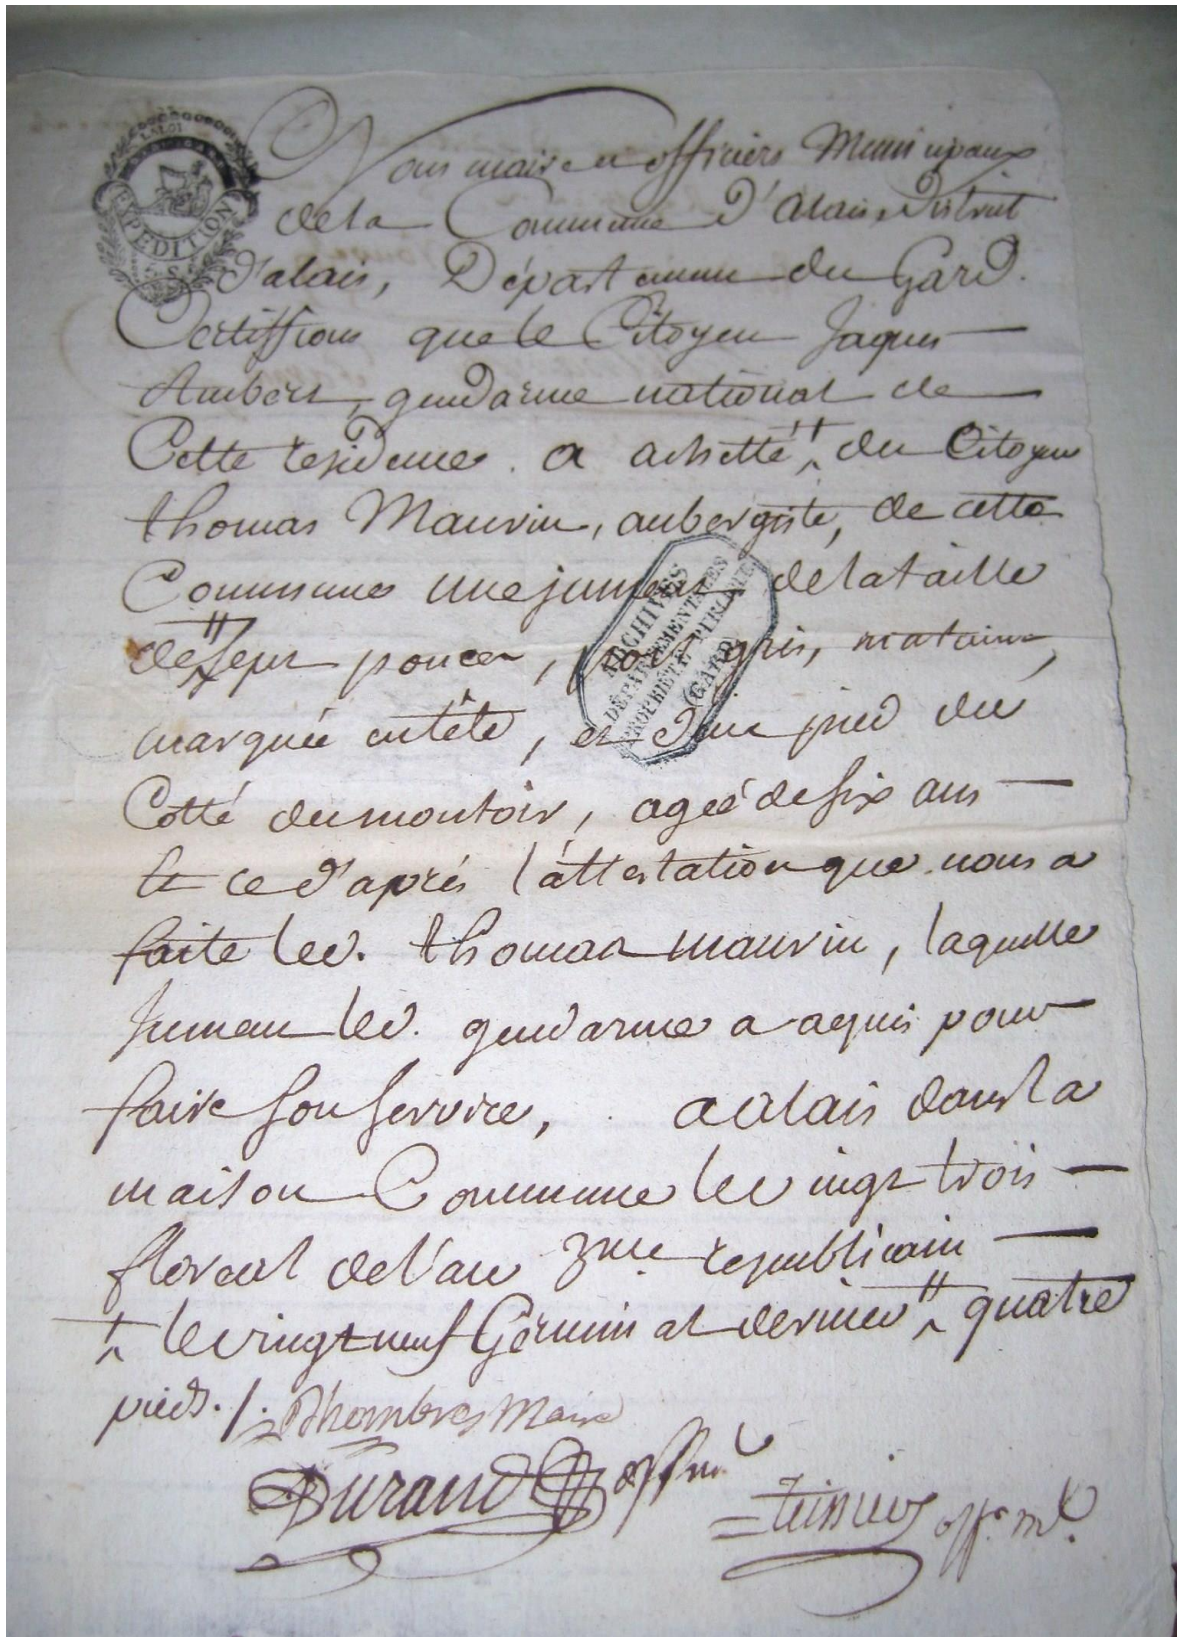 LA LOI
EXPEDITION
Nous maire et officiers Municipaux
de la Commune D'Alais, District
d'alais, Département du Gard.
Certiffions que le Citoyen Jaques
Aubert, gendarme national de
Cette residence a achetté du Citoyen
thomas Mauvin, aubergiste, de cette
Commune une jument de la taille
de sept pouces, gris,
marquée en tête, et d'un pied du
Cotté du montoir, ageé de six ans
Et ce d'après l'attestation que nous a
faite led. thomas mauvin, laquelle
Jument led. gendarme a aquis pour
faire son service, a alais dans la
maison Commune le vingt trois
floreal de l'an 3me republicain
le vingt neuf Germinal dernier quatre
pieds. /.
Dhombres Maire
Durand off mal
teissier off. ml.
ARCHIVES
DÉPARTEMENTALES
PROPRIÉTÉ PUBLIQUE
(GARD)